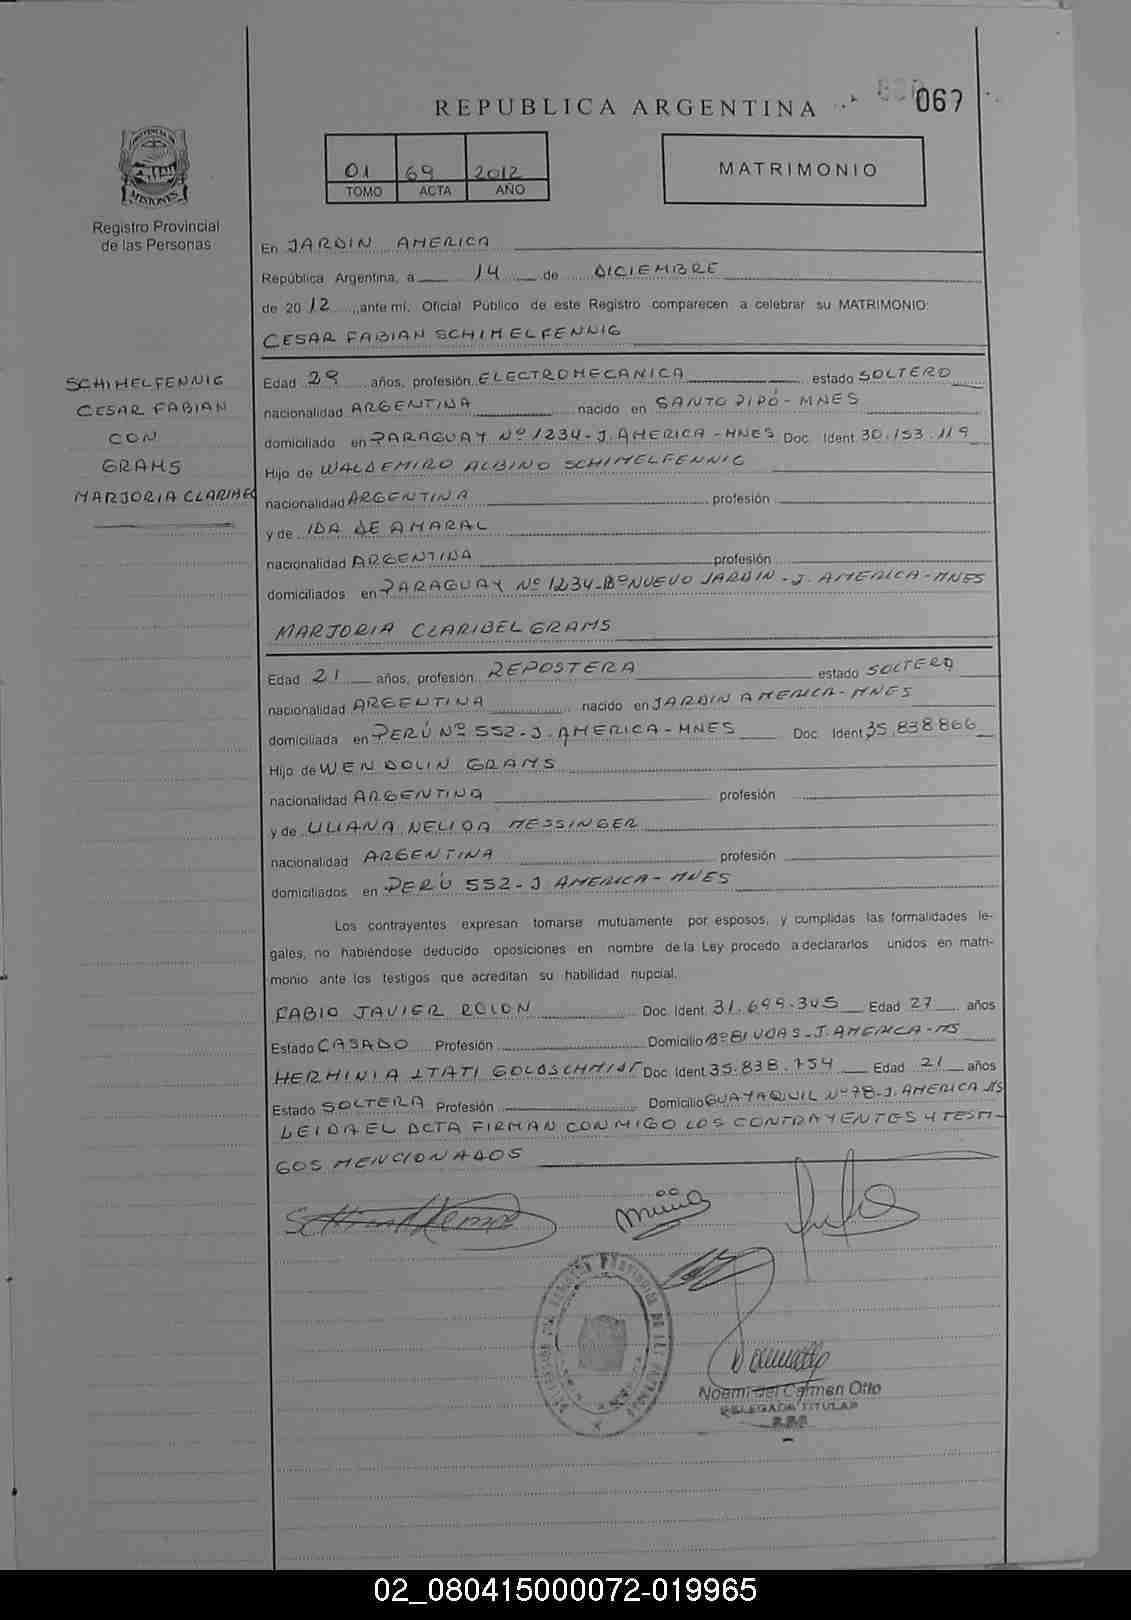 REPUBLICA ARGENTINA
067
01 69 2012
TOMO ACTA AÑO
MATRIMONIO
MISIONES
Registro Provincial
de las Personas
En JARDIN AMERICA
República Argentina, a 14 de DICIEMBRE
de 2012, ante mí, Oficial Público de este Registro comparecen a celebrar su MATRIMONIO:
CESAR FABIAN SCHIMELFENNIG
SCHIMELFENNIG
CESAR FABIAN
CON
GRAMS
MARJORIA CLARIBEL
Edad 29 años, profesión ELECTROMECANICA estado SOLTERO
nacionalidad ARGENTINA nacido en SANTO PIPÓ - MNES
domiciliado en PARAGUAY Nº 1234 - J. AMERICA - MNES Doc. Ident. 30.153.119
Hijo de WALDEMIRO ALBINO SCHIMELFENNIG
nacionalidad ARGENTINA profesión
y de IDA DE AMARAL
nacionalidad ARGENTINA profesión
domiciliados en PARAGUAY Nº 1234 - Bº NUEVO JARDIN - J. AMERICA - MNES
MARJORIA CLARIBEL GRAMS
Edad 21 años, profesión REPOSTERA estado SOLTERO
nacionalidad ARGENTINA nacido en JARDIN AMERICA - MNES
domiciliada en PERÚ Nº 552 - J. AMERICA - MNES Doc. Ident. 35.838.866
Hijo de WENDOLIN GRAMS
nacionalidad ARGENTINA profesión
y de LILIANA NELIDA MESSINGER
nacionalidad ARGENTINA profesión
domiciliados en PERÚ 552 - J AMERICA - MNES
Los contrayentes expresan tomarse mutuamente por esposos, y cumplidas las formalidades le-
gales, no habiéndose deducido oposiciones en nombre de la Ley procedo a declararlos unidos en matri-
monio ante los testigos que acreditan su habilidad nupcial.
FABIO JAVIER ROLON Doc. Ident. 31.699.345 Edad 27 años
Estado CASADO Profesión Domicilio Bº 81 VDAS - J. AMERICA - MS
HERMINIA ITATI GOLDSCHMIDT Doc. Ident. 35.838.754 Edad 21 años
Estado SOLTERA Profesión Domicilio GUAYAQUIL Nº 78 - J. AMERICA MS
LEIDA EL ACTA FIRMAN CONMIGO LOS CONTRAYENTES Y TESTI-
GOS MENCIONADOS
Noemi del Carmen Otto
DELEGADA TITULAR
02_080415000072-019965